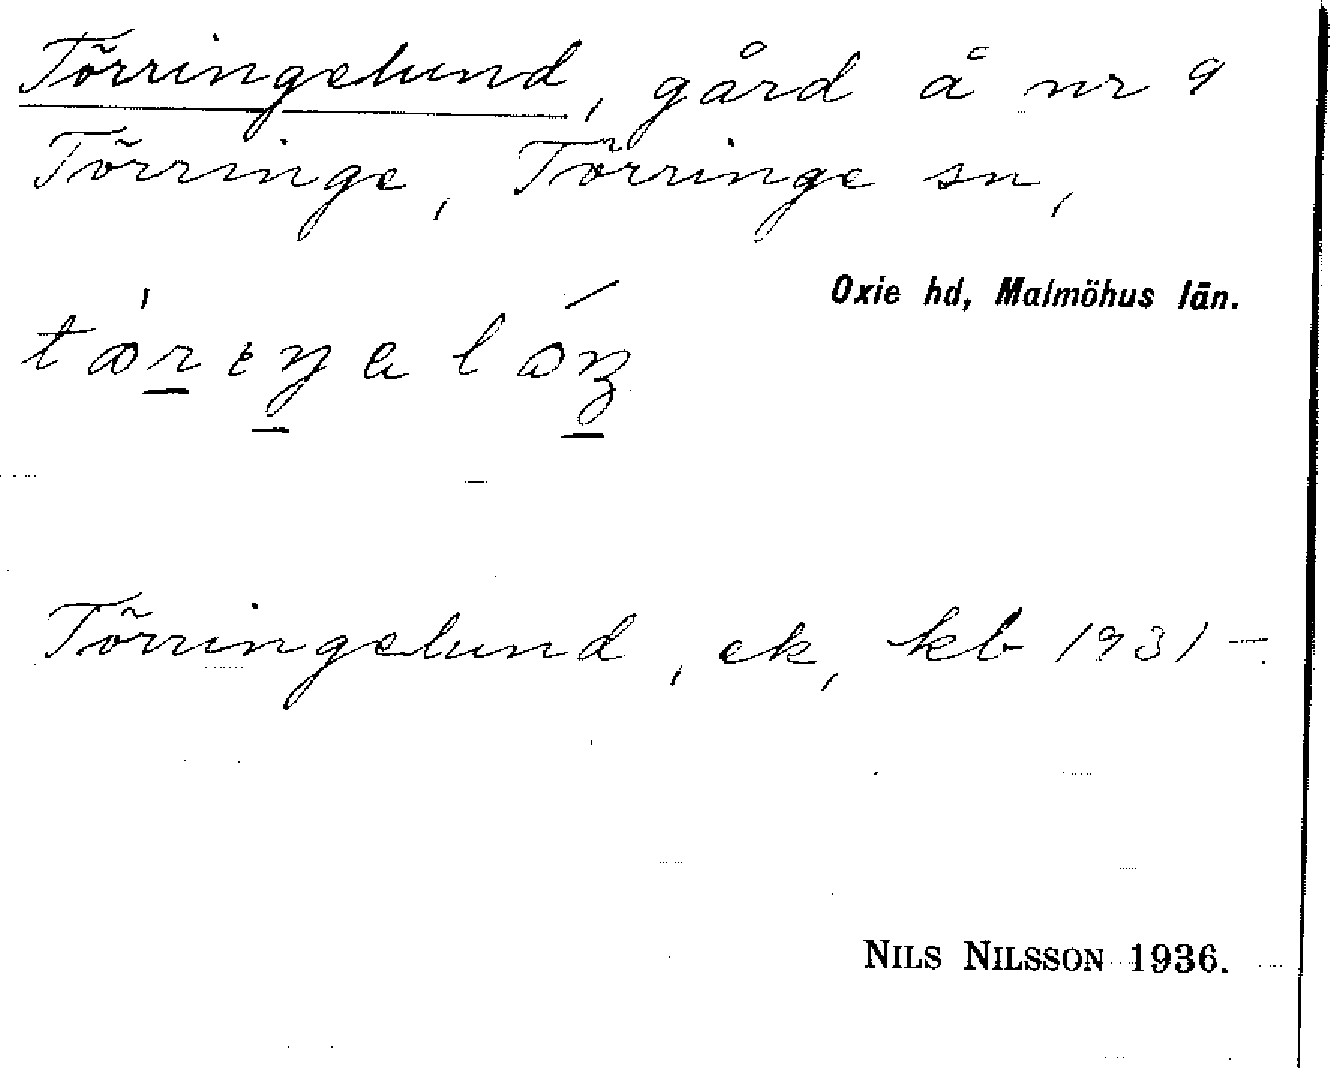 Törringelund, gård å nr 9
Törringe, Törringe sn,
Oxie hd, Malmöhus län.
Törringelund, ek, kb 1931 –.
NILS NILSSON 1936.